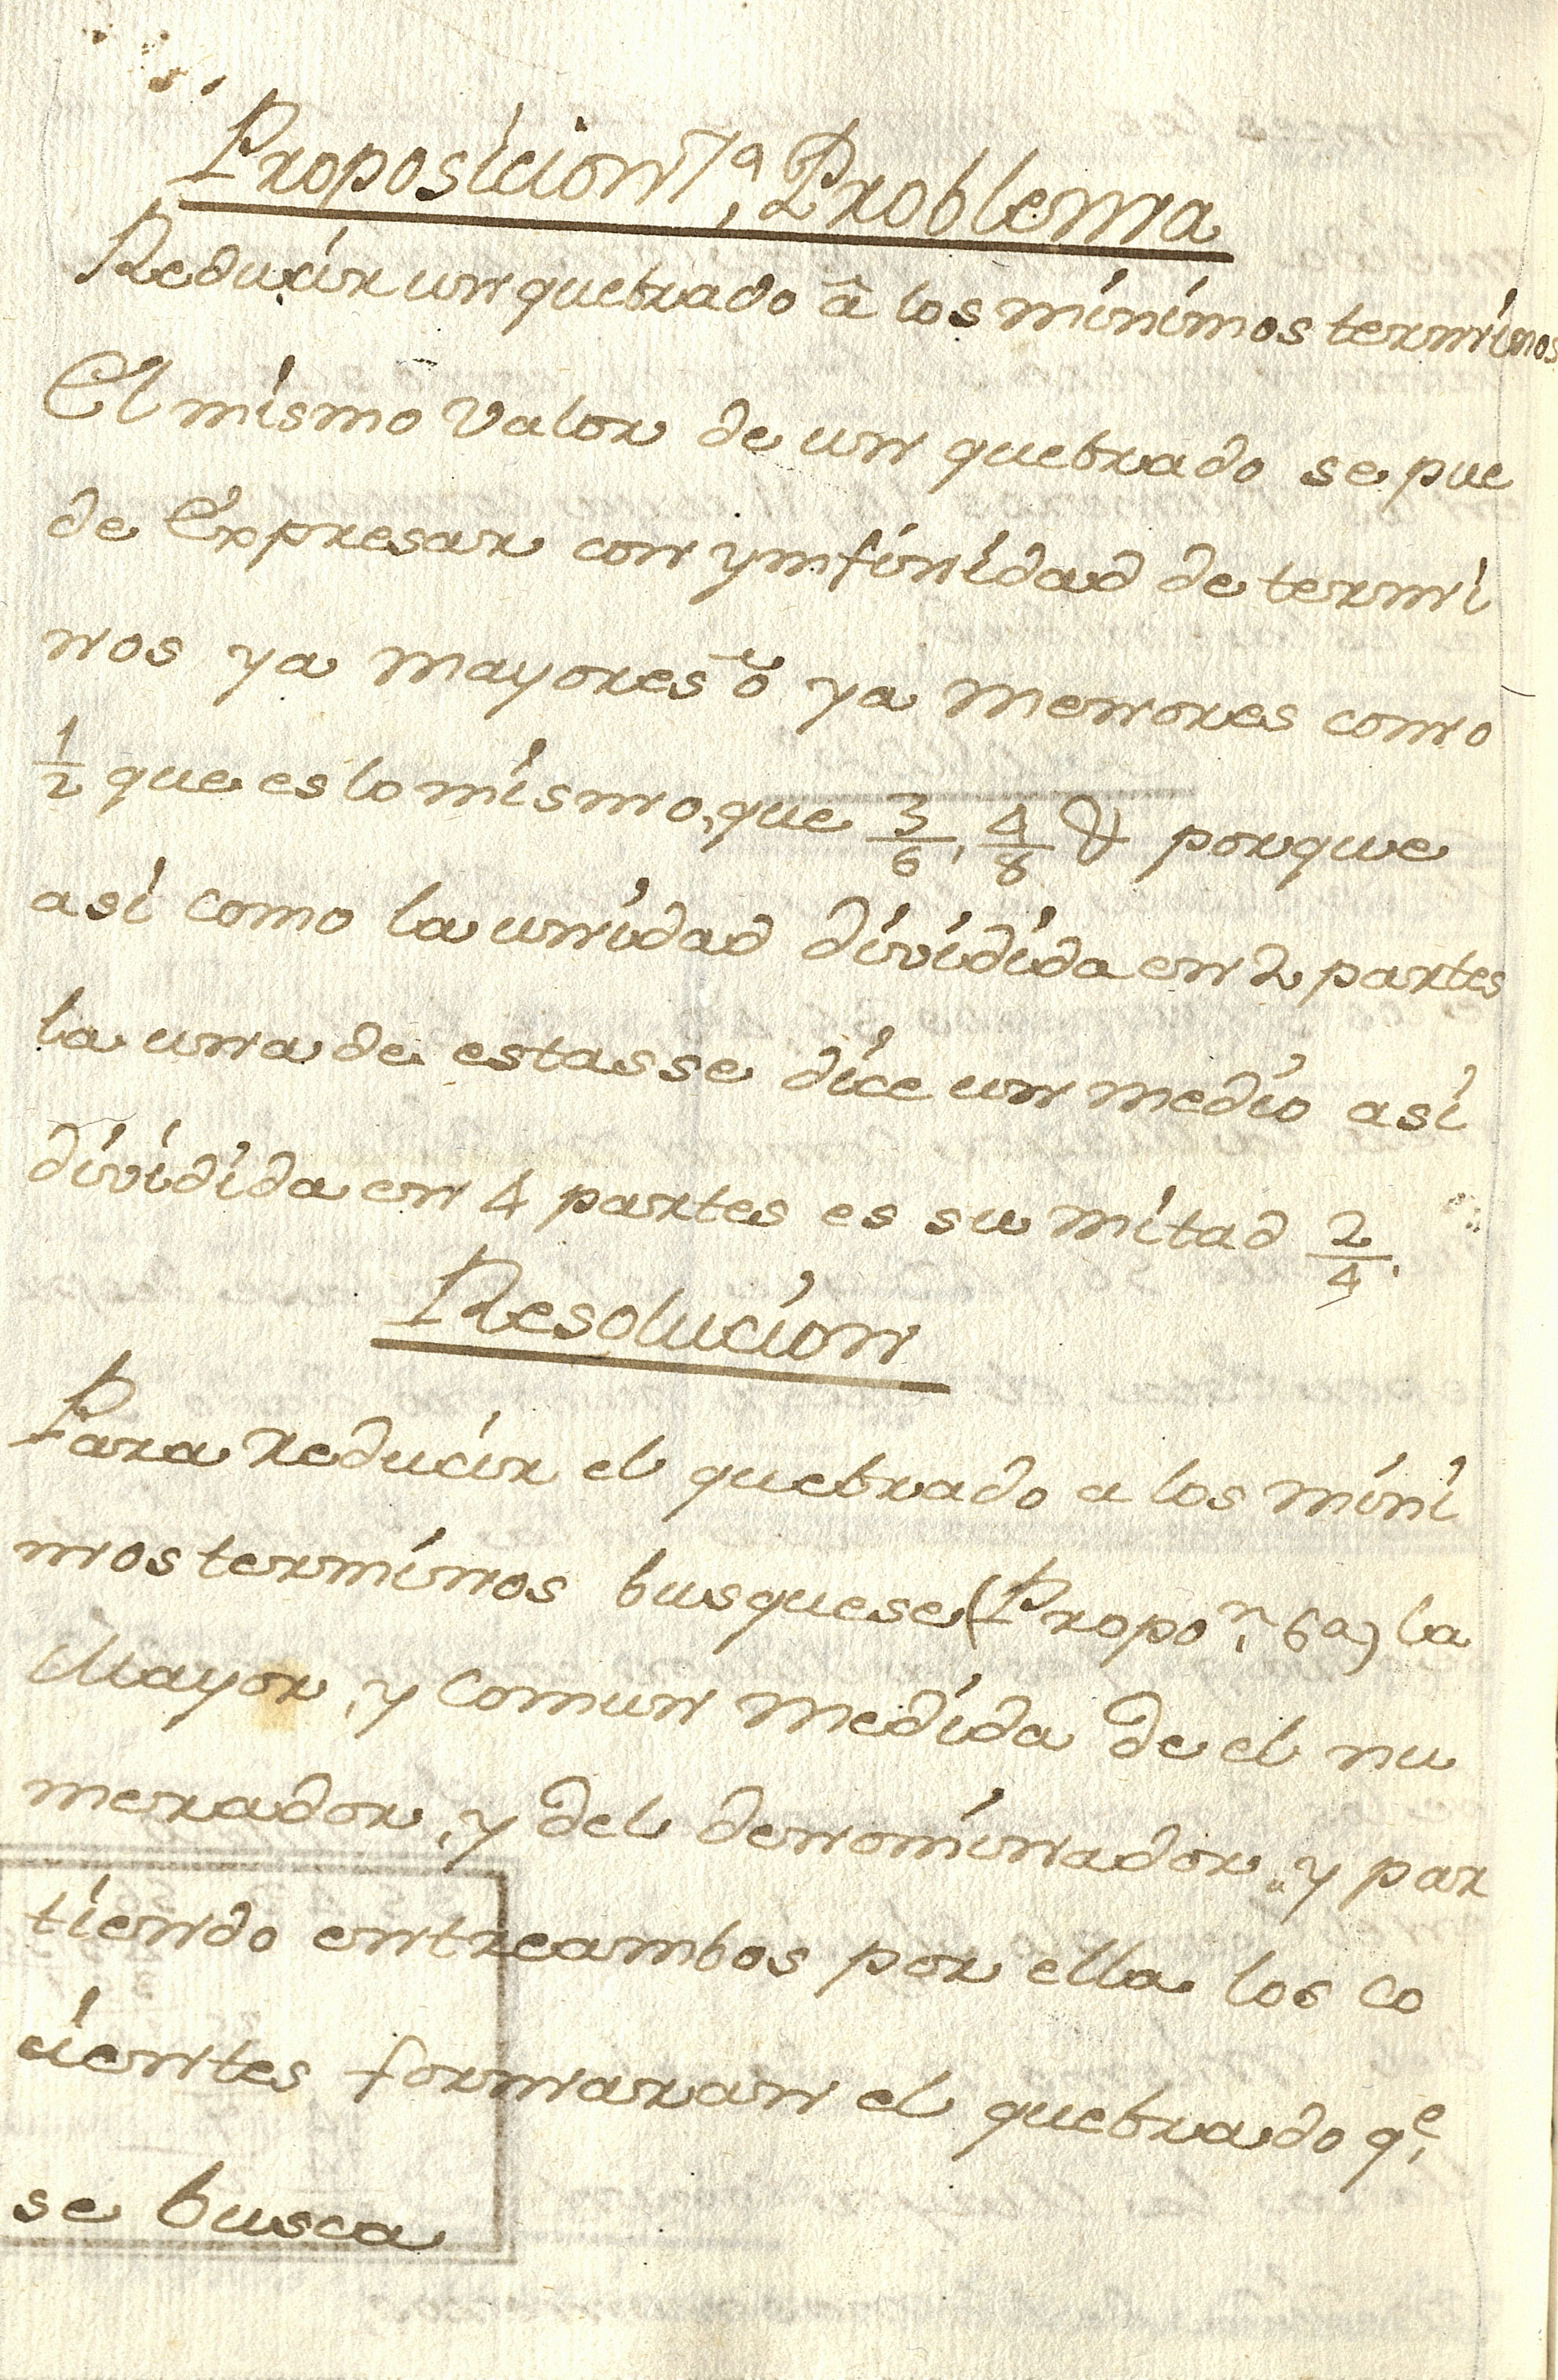 Proposicion 7ª, Problema
Reducir un quebrado â los minimos terminos
El mismo valor de un quebrado se pue
de Expresar con ynfinidad de termi
nos ya mayores ô ya menores como
1/2 que es lo mismo, que 3/6, 4/8 & porque
asi como la unidad dividida en 2 partes
la una de estas se dice un medio asi
dividida en 4 partes es su mitad 2/4.
Resolucion
Para reducir el quebrado a los mini
mos terminos busquese (Propoⁿ, 6ª) la
Mayor, y comun medida de el nu
merador, y del denominador, y par
tiendo entreambos por ella los co
cientes formaran el quebrado qᵉ,
se busca